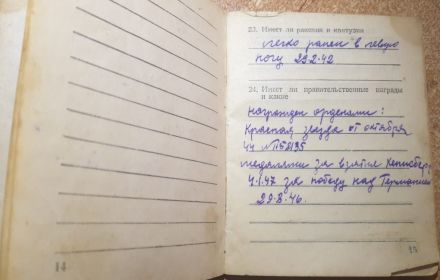 23. Имеет ли ранения и контузии
легко ранен в левую
ногу 29.2.42
24. Имеет ли правительственные награды
и какие
награжден орденами:
Красная звезда от октября
44
медалями за взятие Кенигсберг
4.1.47 за победу над Германией
29.8.46.
14
15